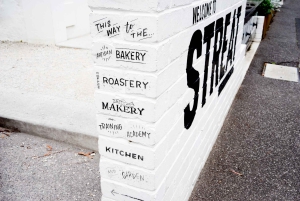 THIS...
WAY TO THE...
ARTISAN BAKERY
ROASTERY
MAKERY
TRAINING ACADEMY
KITCHEN
GARDEN
WELCOME TO
STREAT